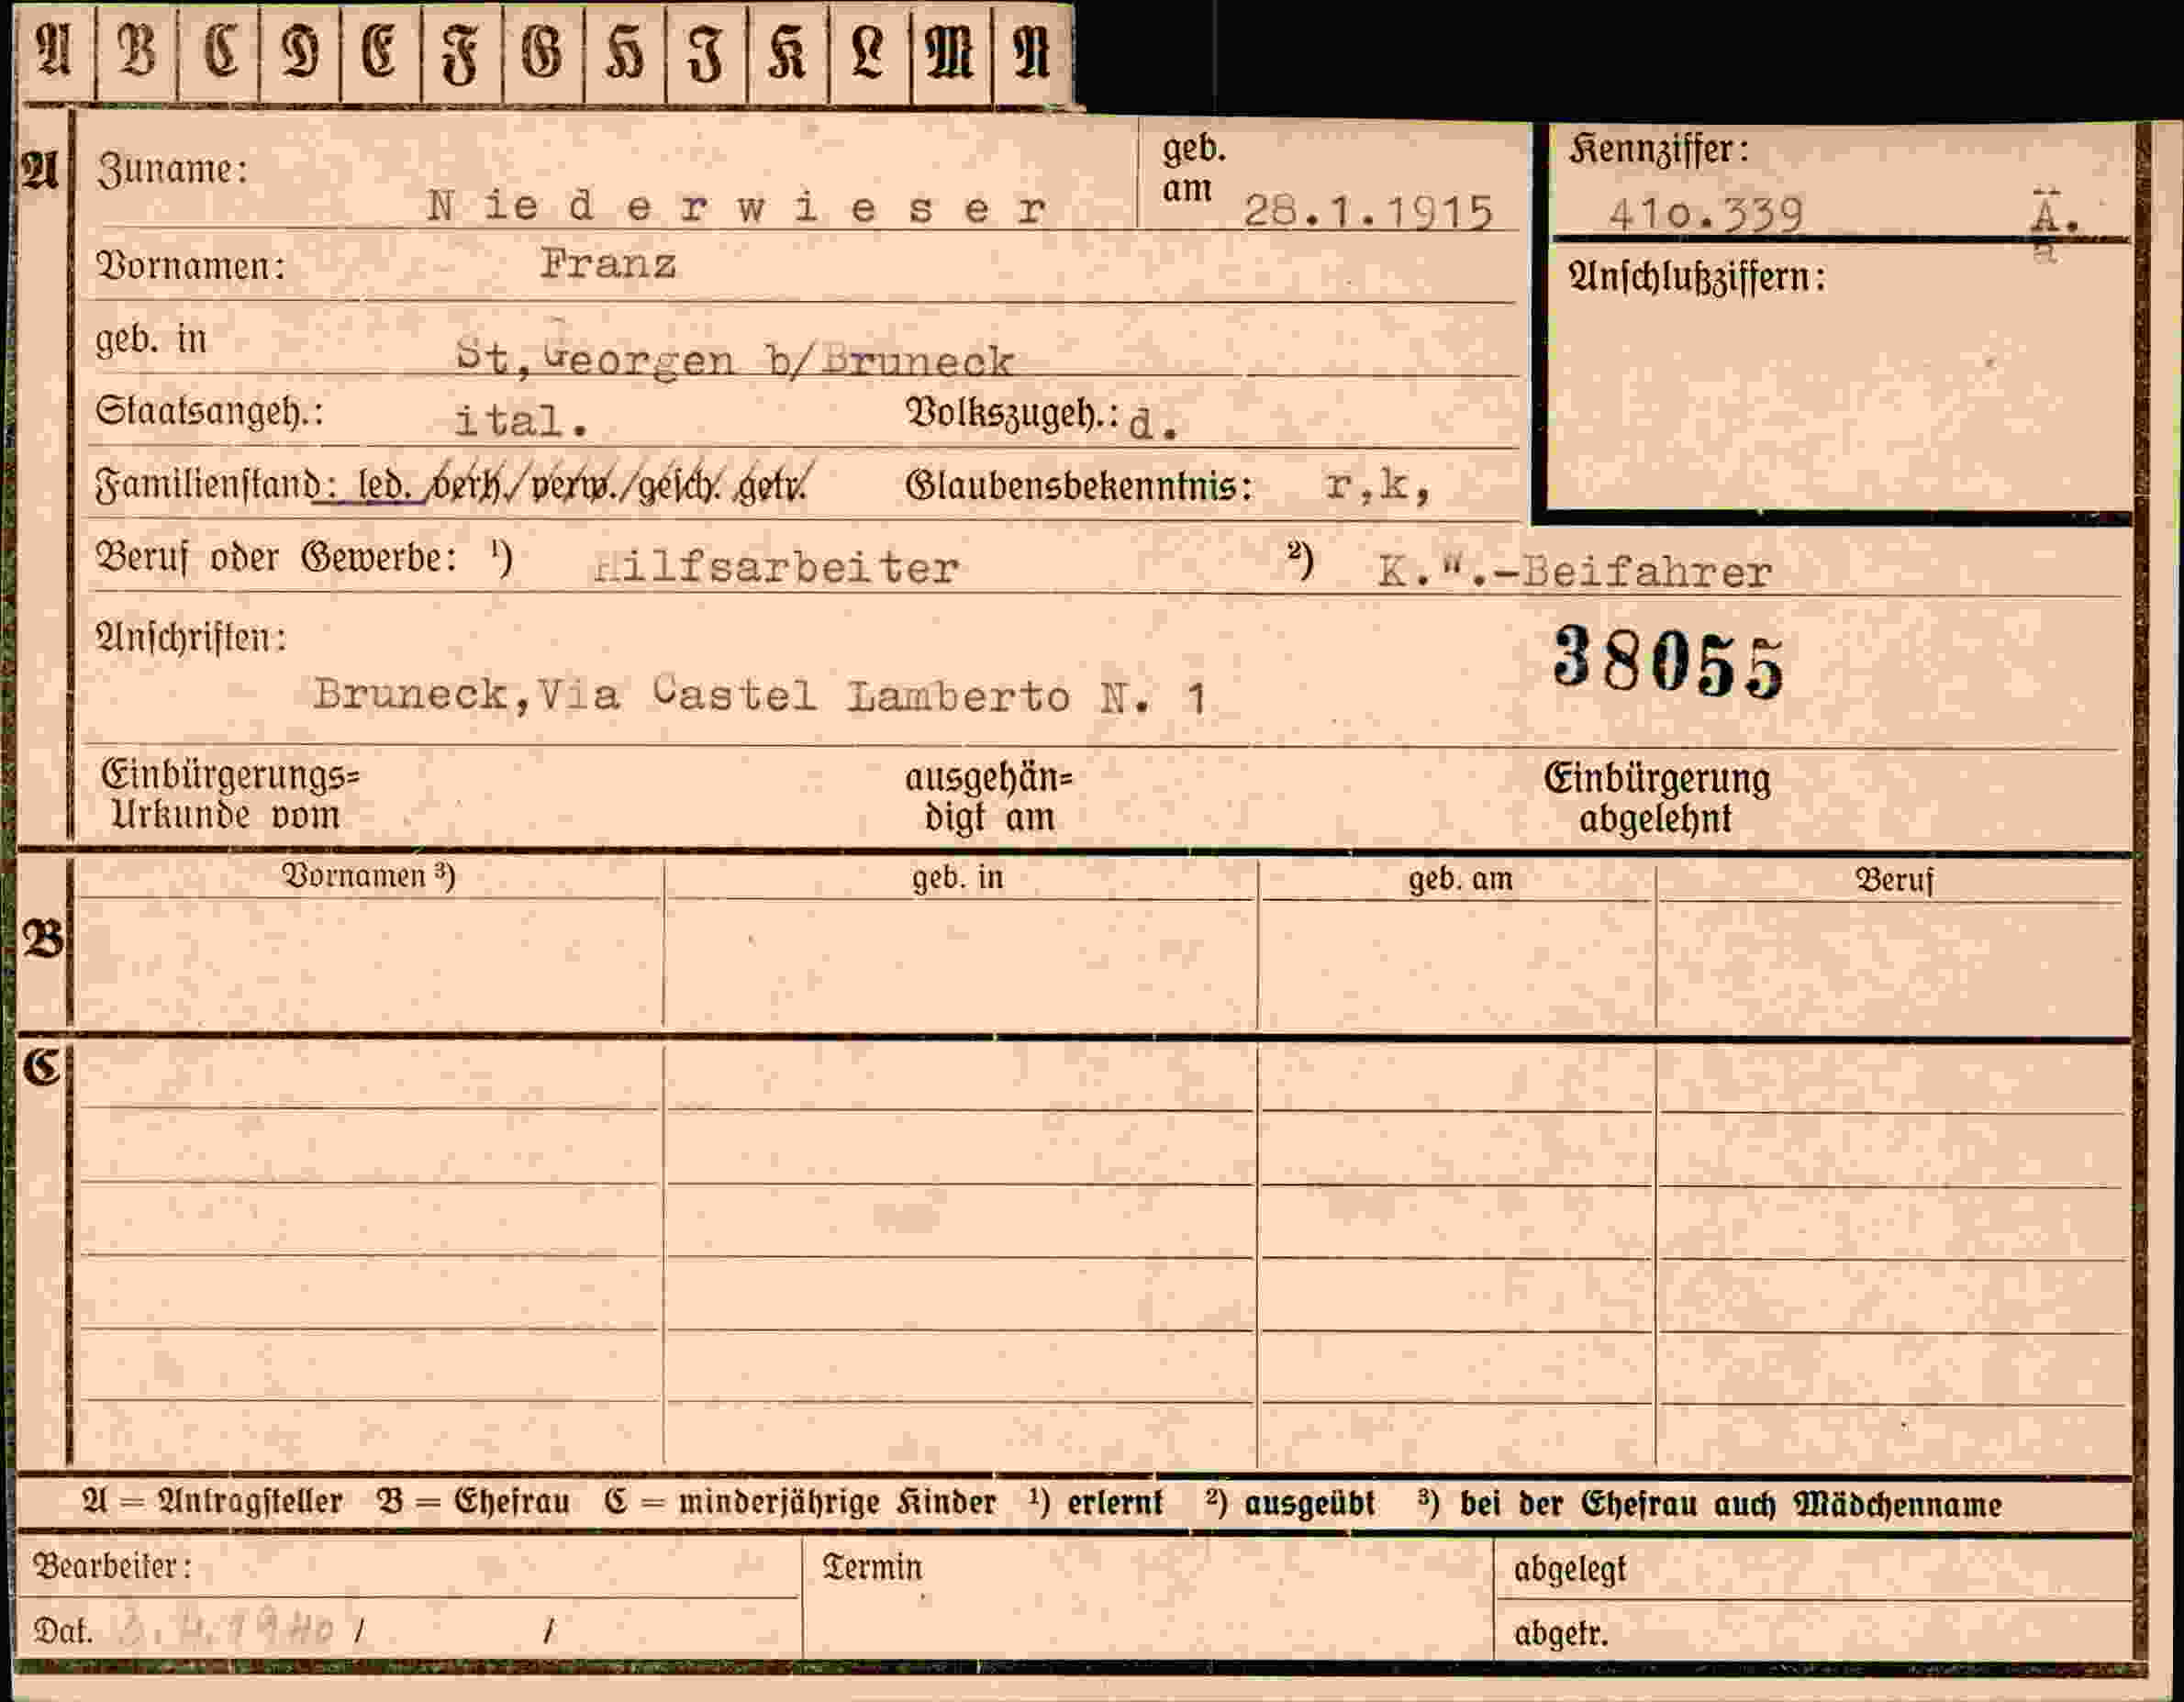 A B C D E F G H I K L M N
A Zuname: Niederwieser geb. am 28.1.1915 Kennziffer: 41o.339 Ä.
Vornamen: Franz Anschlußziffern:
geb. in St,Georgen b/Bruneck
Staatsangeh.: ital. Volkszugeh.: d.
Familienstand: led. /verh./verw./gesch. getr. Glaubensbekenntnis: r,k,
Beruf oder Gewerbe: ¹) Hilfsarbeiter ²) K.".-Beifahrer
Anschriften: 38055
Bruneck,Via Castel Lamberto N. 1
Einbürgerungs= ausgehän= Einbürgerung
Urkunde vom digt am abgelehnt
Vornamen ³) geb. in geb. am Beruf
B
C
A = Antragsteller B = Ehefrau C = minderjährige Kinder ¹) erlernt ²) ausgeübt ³) bei der Ehefrau auch Mädchenname
Bearbeiter: Termin abgelegt
Dat. 3.4.1940 / / abgetr.